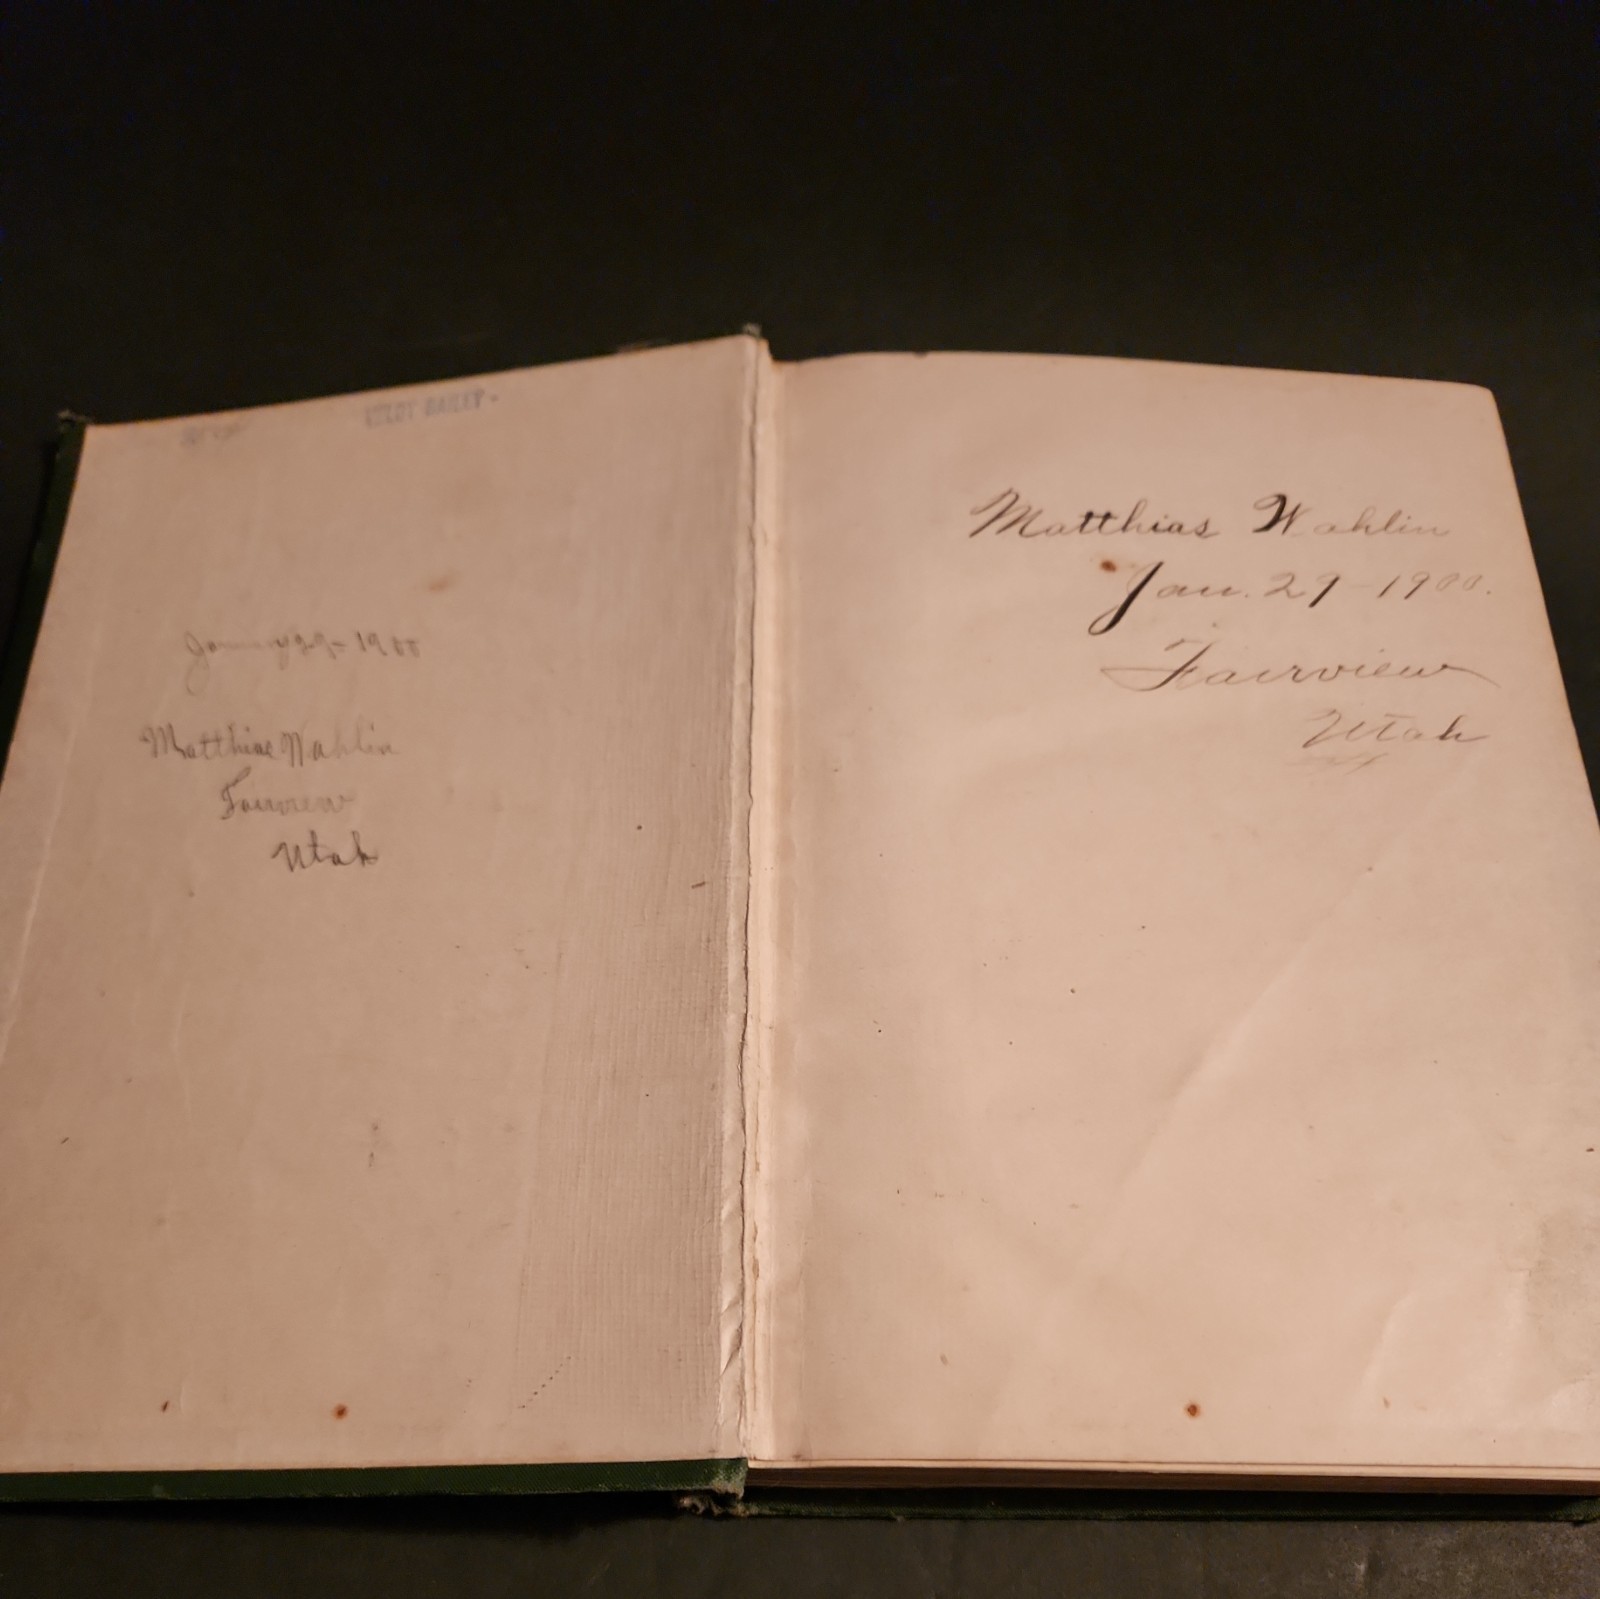 January 29-1900
Matthias Wahlin
Fairview
Utah
Matthias Wahlin
Jan. 29-1900.
Fairview
Utah